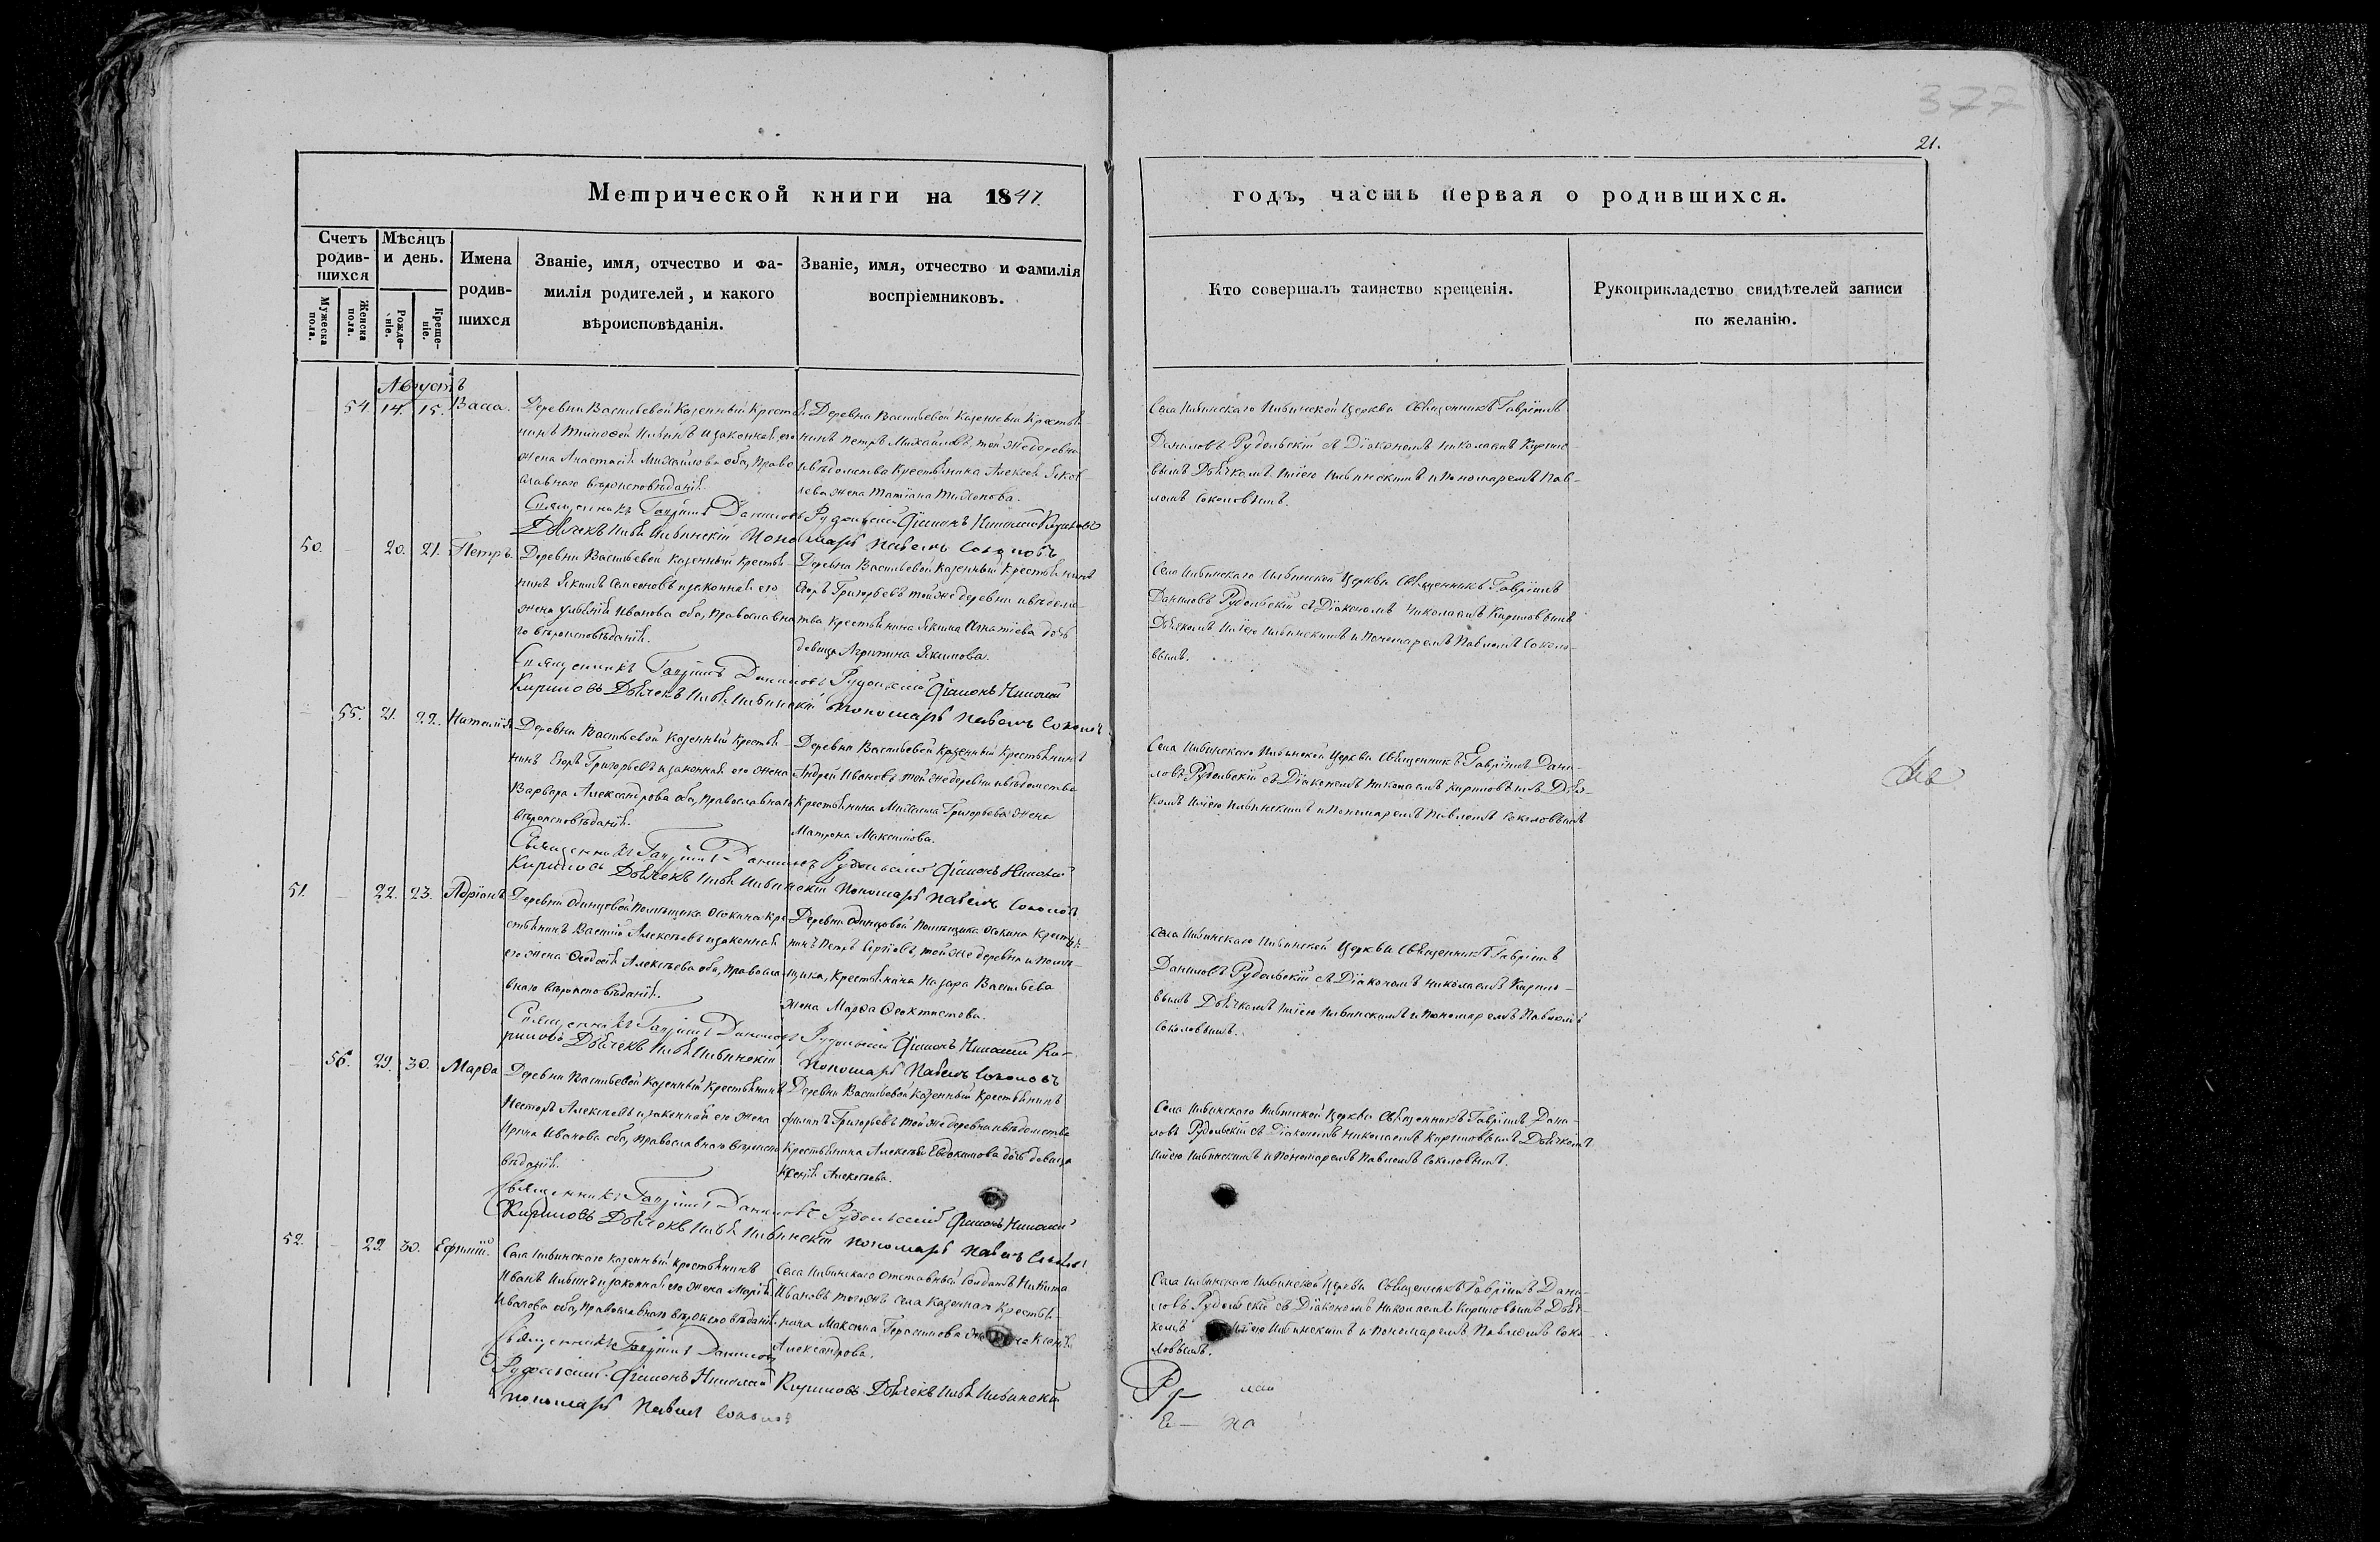 377
21.
Метрической книги на 1847.
годъ, часть первая о родившихся.
Счетъ родившихся
Мужеска пола.
Женска пола.
Мѣсяцъ и день.
Рожденіе.
Крещеніе.
Имена родившихся
Званіе, имя, отчество и фамилія родителей, и какого вѣроисповѣданія.
Званіе, имя, отчество и фамилія воспріемниковъ.
Кто совершалъ таинство крещенія.
Рукоприкладство свидѣтелей записи по желанію.
Августъ
54. 14. 15. Васса.
Деревни Васильевой Казенный Крестья-
нинъ Тимофей Ильинъ и законная его
жена Анастасія Михайлова оба, Право-
славнаго вѣроисповѣданія.
Деревни Васильевой Казенный Крестья-
нинъ Петръ Михайловъ, той же деревни
и вѣдомства Крестьянина Алексея Яков-
лева жена Татіана Тихонова.
Села Ильинскаго Ильинской Церкви Священникъ Гавріилъ
Даниловъ Рудольскій съ Діакономъ Николаемъ Кирило-
вымъ Дьячкомъ Иліею Ильинскимъ и Пономаремъ Пав-
ломъ Соколовымъ.
Священникъ Гавріилъ Даниловъ Рудольскій Діаконъ Николай Кириловъ
Дьячекъ Илья Ильинскій Пономарь Павелъ Соколовъ
50. 20. 21. Петръ.
Деревни Васильевой Казенный Крестья-
нинъ Якимъ Семеоновъ и законная его
жена Ульянія Иванова оба, Православна-
го вѣроисповѣданія.
Деревни Васильевой Казенный Крестьянинъ
Егоръ Григорьевъ той же деревни и вѣдомс-
тва Крестьянина Якима Игнатіева дочь
девица Агрипина Якимова.
Села Ильинскаго Ильинской Церкви Священникъ Гавріилъ
Даниловъ Рудольскій съ Діакономъ Николаемъ Кириловымъ
Дьячкомъ Иліею Ильинскимъ и Пономаремъ Павломъ Соколо-
вымъ.
Священникъ Гавріилъ Даниловъ Рудольскій Діаконъ Николай
Кириловъ Дьячекъ Илья Ильинскій Пономарь Павелъ Соколовъ
55. 21. 22. Наталія
Деревни Васильевой Казенный Крестья-
нинъ Егоръ Григорьевъ и законная его жена
Варвара Александрова оба, Православнаго
вѣроисповѣданія.
Деревни Васильевой Казенный Крестьянинъ
Андрей Ивановъ той же деревни и вѣдомства
Крестьянина Михаила Григорьева жена
Матрона Максимова.
Села Ильинскаго Ильинской Церкви Священникъ Гавріилъ Дани-
ловъ Рудольскій съ Діакономъ Николаемъ Кириловымъ Дьяч-
комъ Иліею Ильинскимъ и Пономаремъ Павломъ Соколовымъ
Священникъ Гавріилъ Даниловъ Рудольскій Діаконъ Николай
Кириловъ Дьячекъ Илья Ильинскій Пономарь Павелъ Соколовъ
51. 22. 23. Адріанъ
Деревни Одинцовой Помѣщика Осокина Кре-
стьянинъ Василій Алексѣевъ и законная
его жена Ѳеодосія Алексѣева оба, Правосла-
внаго вѣроисповѣданія.
Деревни Одинцовой Помѣщика Осокина Крестья-
нинъ Петръ Сергіевъ, той же деревни и помѣ-
щика, Крестьянина Назара Васильева
жена Марѳа Ѳеоктистова.
Села Ильинскаго Ильинской Церкви Священникъ Гавріилъ
Даниловъ Рудольскій съ Діакономъ Николаемъ Кирило-
вымъ Дьячкомъ Иліею Ильинскимъ и Пономаремъ Павломъ
Соколовымъ.
Священникъ Гавріилъ Даниловъ Рудольскій Діаконъ Николай Ки-
риловъ Дьячекъ Илья Ильинскій Пономарь Павелъ Соколовъ
56. 29. 30. Марѳа
Деревни Васильевой Казенный Крестьянинъ
Несторъ Алексѣевъ и законная его жена
Ирина Иванова оба, Православнаго вѣроиспо-
вѣданія.
Деревни Васильевой Казенный Крестьянинъ
Филипъ Григорьевъ той же деревни и вѣдомства
Крестьянина Алексѣя Евдокимова дочь девица
Ксенія Алексѣева.
Села Ильинскаго Ильинской Церкви Священникъ Гавріилъ Дани-
ловъ Рудольскій съ Діакономъ Николаемъ Кириловымъ Дьячкомъ
Иліею Ильинскимъ и Пономаремъ Павломъ Соколовымъ.
Священникъ Гавріилъ Даниловъ Рудольскій Діаконъ Николай
Кириловъ Дьячекъ Илья Ильинскій Пономарь Павелъ Соколовъ
52. 29. 30. Ефимій.
Села Ильинскаго Казенный Крестьянинъ
Иванъ Ильинъ и законная его жена Марія
Иванова оба, Православнаго вѣроисповѣданія.
Села Ильинскаго отставный Солдатъ Никита
Ивановъ тогожъ села Казеннаго Крестья-
нина Максима Герасимова жена
Александрова.
Села Ильинскаго Ильинской Церкви Священникъ Гавріилъ Дани-
ловъ Рудольскій съ Діакономъ Николаемъ Кириловымъ Дьяч-
комъ Иліею Ильинскимъ и Пономаремъ Павломъ Соко-
ловымъ.
Священникъ Гавріилъ Даниловъ
Рудольскій Діаконъ Николай Кириловъ Дьячекъ Илья Ильинскій
Пономарь Павелъ Соколовъ